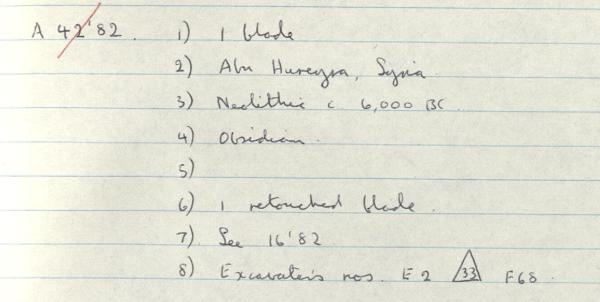 A 42'82. 1) 1 blade
2) Abu Hureyra, Syria
3) Neolithic c 6,000 BC
4) Obsidian.
5)
6) 1 retouched blade.
7) See 16'82
8) Excavator's nos. E2 33 F68.